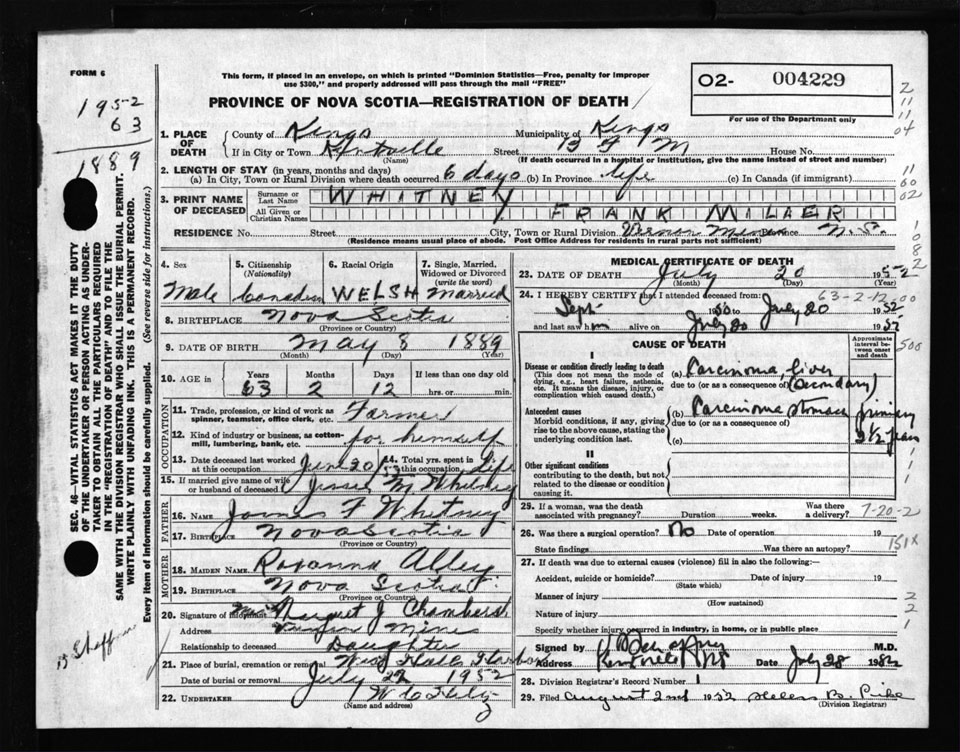 FORM 6
This form, if placed in an envelope, on which is printed "Dominion Statistics—Free, penalty for improper
use $300," and properly addressed will pass through the mail "FREE"
PROVINCE OF NOVA SCOTIA—REGISTRATION OF DEATH
O2- 004229
For use of the Department only
1952
63
1889
SEC. 46—VITAL STATISTICS ACT MAKES IT THE DUTY
OF THE UNDERTAKER OR PERSON ACTING AS UNDER-
TAKER TO OBTAIN ALL THE PARTICULARS REQUIRED
IN THE "REGISTRATION OF DEATH" AND TO FILE THE
SAME WITH THE DIVISION REGISTRAR WHO SHALL ISSUE THE BURIAL PERMIT.
WRITE PLAINLY WITH UNFADING INK. THIS IS A PERMANENT RECORD.
Every item of Information should be carefully supplied. (See reverse side for instructions.)
1. PLACE OF DEATH
County of Kings Municipality of Kings
If in City or Town Kentville Street B F M House No.
(Name) (If death occurred in a hospital or institution, give the name instead of street and number)
2. LENGTH OF STAY (in years, months and days)
(a) In City, Town or Rural Division where death occurred 6 days (b) In Province life (c) In Canada (if immigrant)
3. PRINT NAME OF DECEASED
Surname or Last Name WHITNEY
All Given or Christian Names FRANK MILNER
RESIDENCE No. Street City, Town or Rural Division Vernon Mines Province N.S.
(Residence means usual place of abode. Post Office Address for residents in rural parts not sufficient)
4. Sex 5. Citizenship (Nationality) 6. Racial Origin 7. Single, Married, Widowed or Divorced (write the word)
Male Canadian WELSH Married
8. BIRTHPLACE Nova Scotia
(Province or Country)
9. DATE OF BIRTH May 8 1889
(Month) (Day) (Year)
10. AGE in Years Months Days If less than one day old
63 2 12 hrs. or min.
OCCUPATION
11. Trade, profession, or kind of work as spinner, teamster, office clerk, etc. Farmer
12. Kind of industry or business, as cotton-mill, lumbering, bank, etc. for himself
13. Date deceased last worked at this occupation June 20 / 52 14. Total yrs. spent in this occupation life
15. If married give name of wife or husband of deceased Jessie M Whitney
FATHER
16. NAME James F Whitney
17. BIRTHPLACE Nova Scotia
(Province or Country)
MOTHER
18. MAIDEN NAME Roxanna
19. BIRTHPLACE Nova Scotia
(Province or Country)
20. Signature of informant Mrs Margaret J Chambers
Address Vernon Mines
Relationship to deceased Daughter
21. Place of burial, cremation or removal West Halls Harbor
Date of burial or removal July 22 1952
22. UNDERTAKER W C Hiltz
(Name and address)
MEDICAL CERTIFICATE OF DEATH
23. DATE OF DEATH July 20 1952
(Month) (Day) (Year)
63-2-12
24. I HEREBY CERTIFY that I attended deceased from:
Sept 1950 to July 20 1952
and last saw him alive on July 20 1952
CAUSE OF DEATH
Approximate interval between onset and death
I
Disease or condition directly leading to death
(This does not mean the mode of dying, e.g., heart failure, asthenia, etc. It means the disease, injury, or complication which caused death.)
(a) Carcinoma liver
due to (or as a consequence of) (Secondary)
Antecedent causes
Morbid conditions, if any, giving rise to the above cause, stating the underlying condition last.
(b) Carcinoma stomach primary
due to (or as a consequence of) 2 1/2 years
(c)
II
Other significant conditions
contributing to the death, but not related to the disease or condition causing it.
25. If a woman, was the death associated with pregnancy? Duration weeks. Was there a delivery? 7-20-2
26. Was there surgical operation? No Date of operation 19
State findings Was there an autopsy? 151X
27. If death was due to external causes (violence) fill in also the following:
Accident, suicide or homicide? Date of injury 19
(State which)
Manner of injury
(How sustained)
Nature of injury
Specify whether injury occurred in industry, in home, or in public place
Signed by M.D.
Address Kentville NS Date July 28 1952
28. Division Registrar's Record Number 1
29. Filed August 2nd 1952 Helen B. Pike
(Division Registrar)